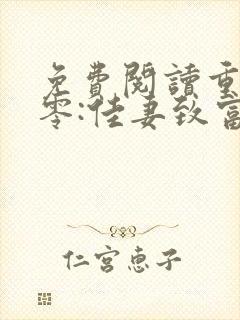 免費閱讀重
零:佳妻致富
仁宮惠子